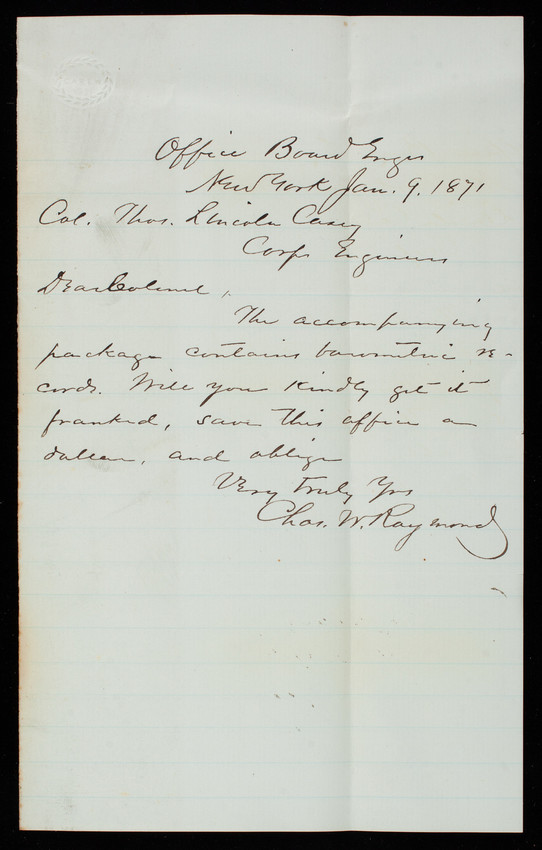 Office Board Engrs
New York Jan. 9. 1871
Col. Thos. Lincoln Casey
Corps Engineers
Dear Colonel,
The accompanying
package contains barometric re-
cords. Will you kindly get it
franked, save this office a
dollar, and oblige
Very Truly Yrs
Chas. W. Raymond